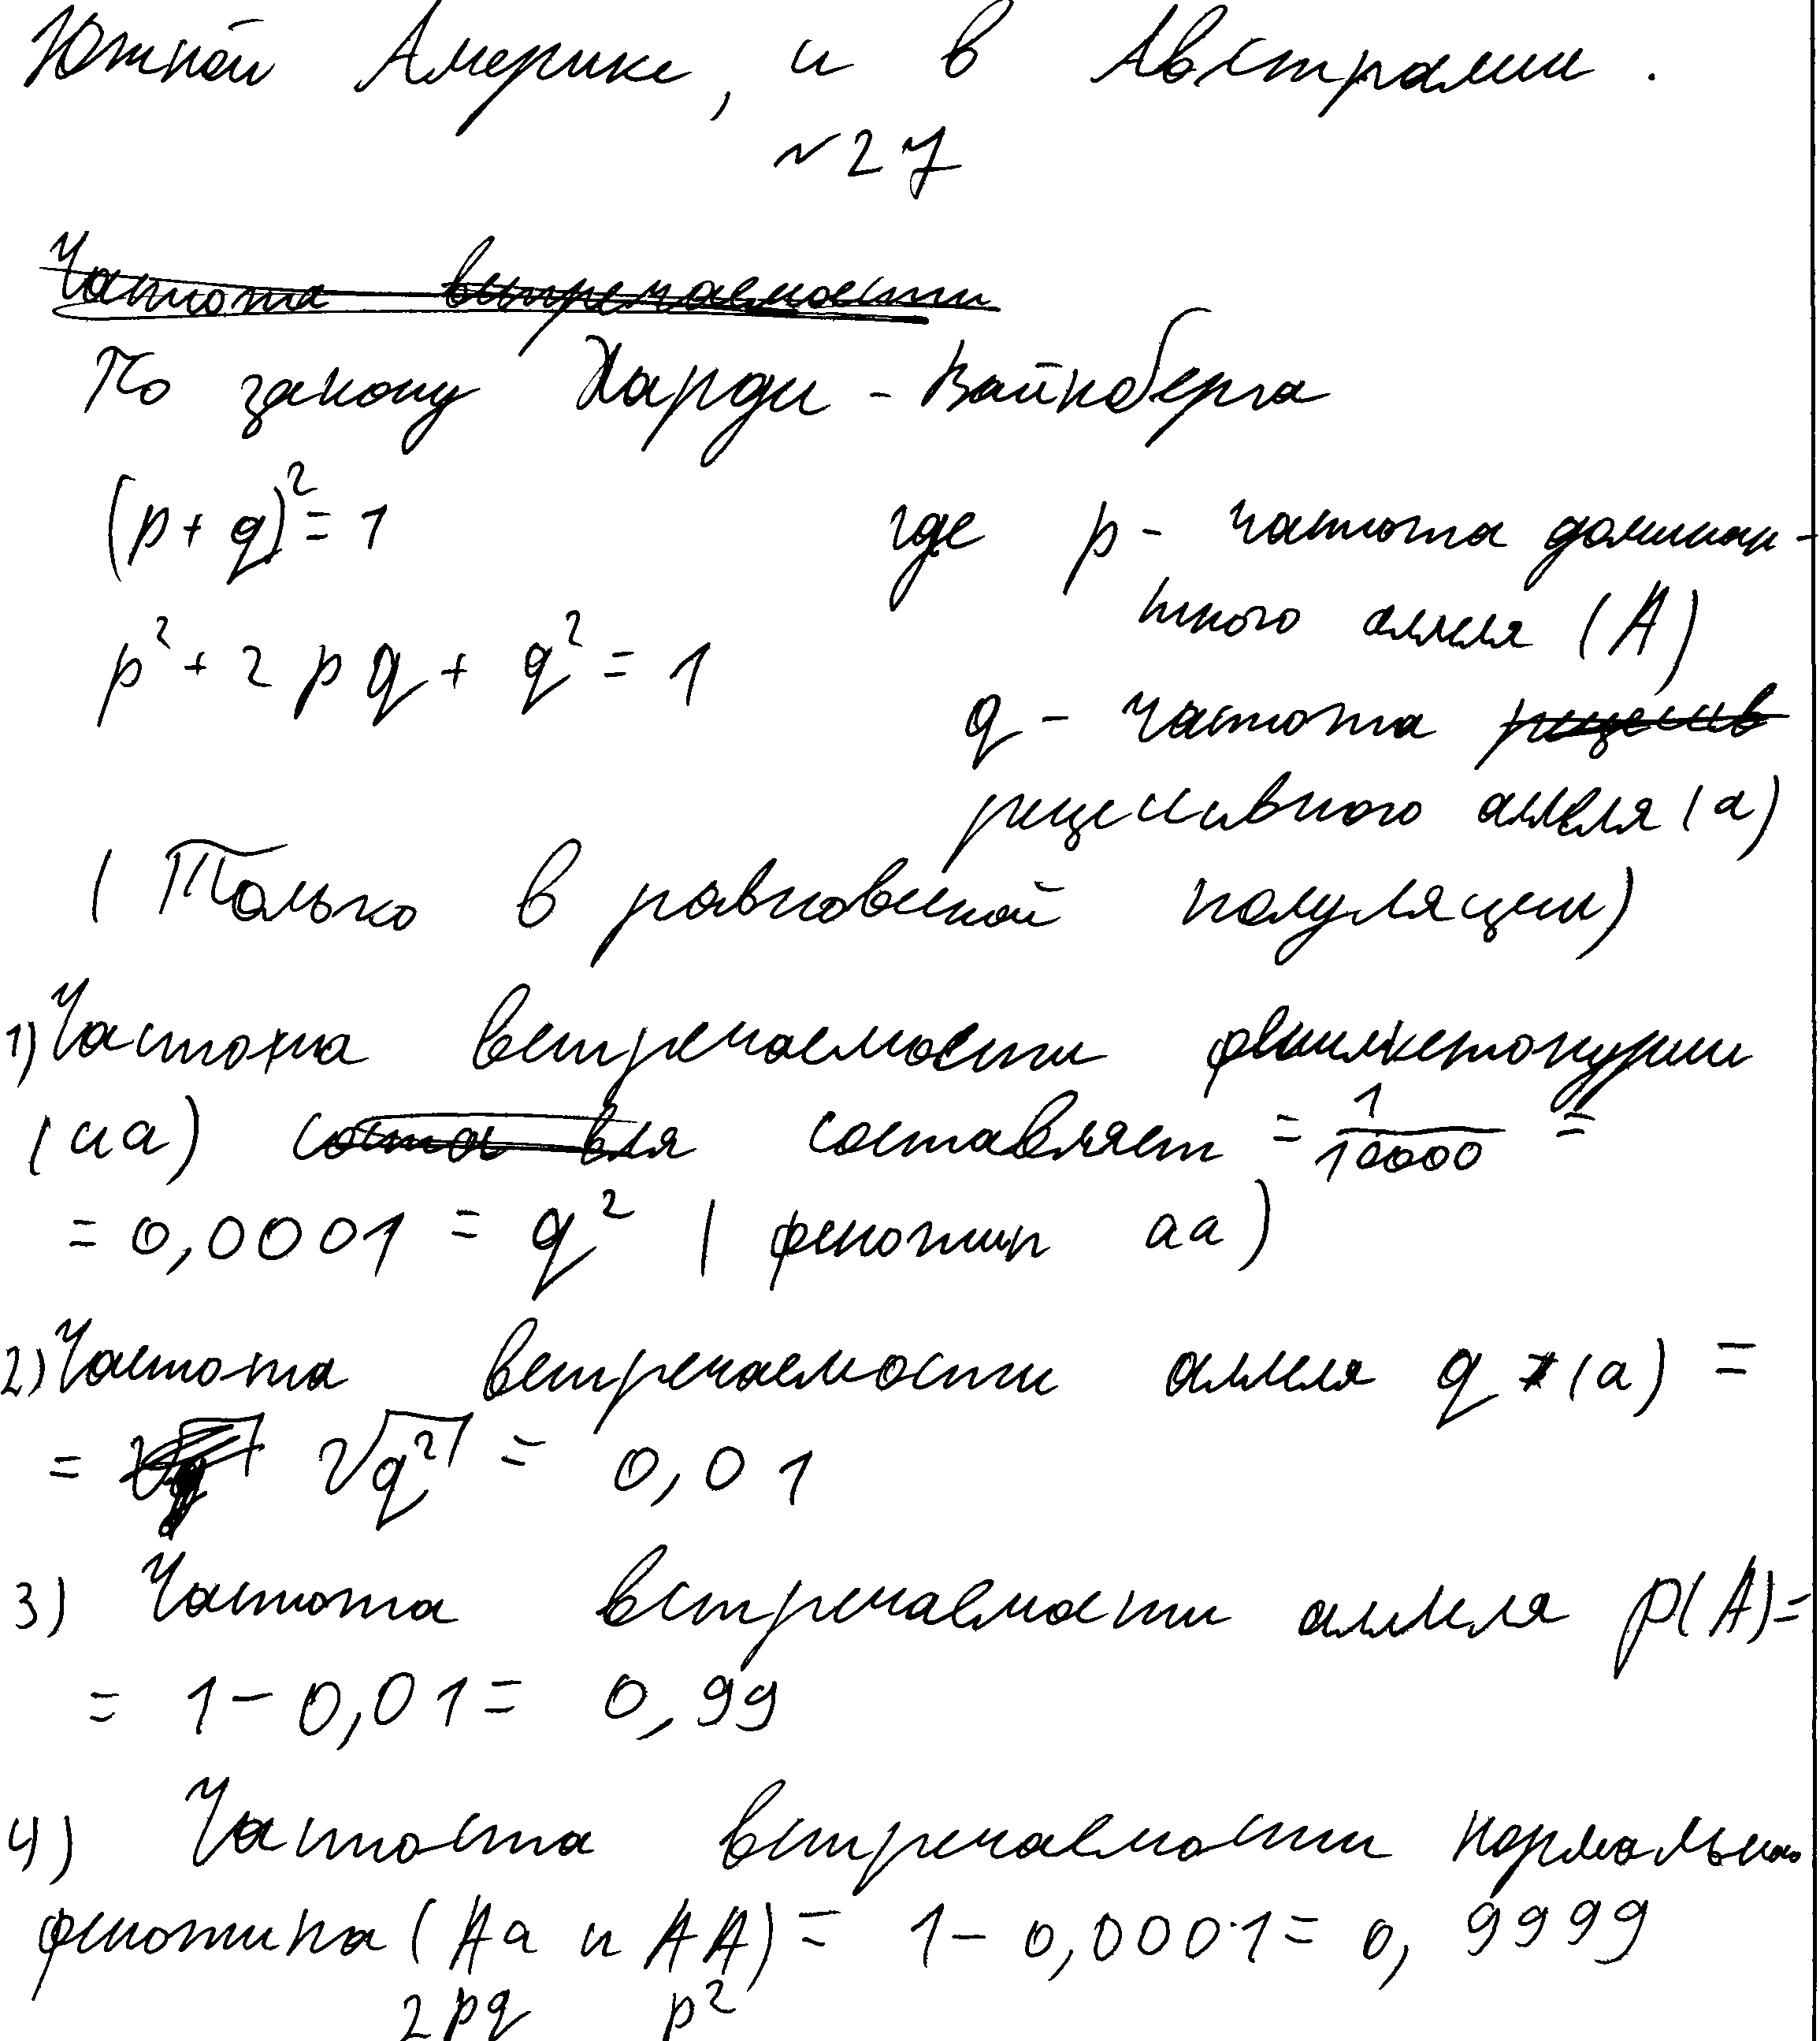 Южной Америке, и в Австралии.
№27
Частота встречаемости
По закону Харди - Вайнберга
(p + q)² = 1 где p - частота доминан-
тного аллеля (A)
p² + 2 p q + q² = 1
q - частота рецессив
рецессивного аллеля (a)
(Только в равновесной популяции)
1) Частота встречаемости фенилкетонурии
(аа) составля составляет = 1/10000 =
= 0,0001 = q² (фенотип аа)
2) Частота встречаемости аллеля q (a) =
= √q² = 0,01
3) Частота встречаемости аллеля p(A) =
= 1 - 0,01 = 0,99
4) Частота встречаемости нормального
фенотипа (Aa и AA) = 1 - 0,0001 = 0,9999
2pq p²